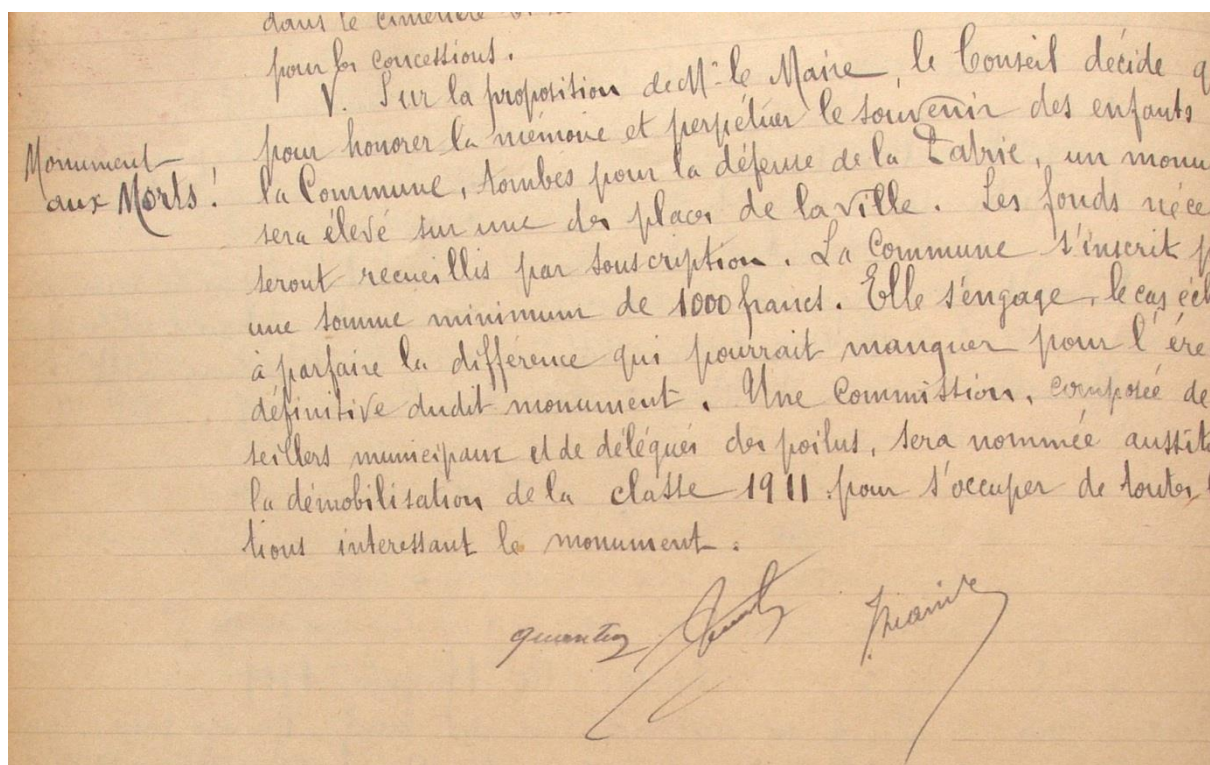 dans le cimetière
pour les concessions.
V. Sur la proposition de Mr le Maire, le Conseil décide q
Monument
aux Morts!
pour honorer la mémoire et perpétuer le souvenir des enfants
la Commune, tombés pour la défense de la Patrie, un monu
sera élevé sur une des places de la ville. Les fonds néce
seront recueillis par souscription. La Commune s'inscrit p
une somme minimum de 1000 francs. Elle s'engage, le cas éch
à parfaire la différence qui pourrait manquer pour l'ére
définitive dudit monument. Une Commission, composée de
seillers municipaux et de délégués des poilus, sera nommée aussit
la démobilisation de la classe 1911 pour s'occuper de toutes
tions interessant le monument.